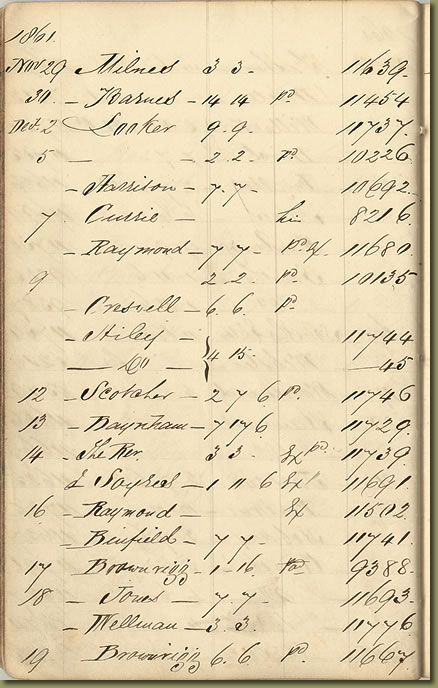 1861.
Nov 29 Milnes 3 3 - 11639
30. - Barnes - 14 14 pd 11454
Dect. 2 Looker 9. 9. 11737
5 - - 2. 2. pd 10226
- Harrison - 7. 7. - 10692
7 Currie - 8216
- Raymond - 7 7 - pd Ex 11680
9 2 2. pd 10135
- Creswell - 6. 6. pd
- Hiley - 11744
- Do - } 4 15. - 45
12 - Scotcher - 2 7 6 pd. 11746
13 - Baynham - 7 17 6 11729
14 - The Rev. 3 3. Ex pd 11739
J Soyres - 1 11 6 Ex 11691
16 - Raymond - Ex 11502
- Binfield - 7 7. - 11741
17 Brownrigg - 1 - 16. 9388
18 - Jones - 7. 7. - 11693
- Wellman - 3. 3. 11776
19 Brownrigg 6. 6. pd. 11667